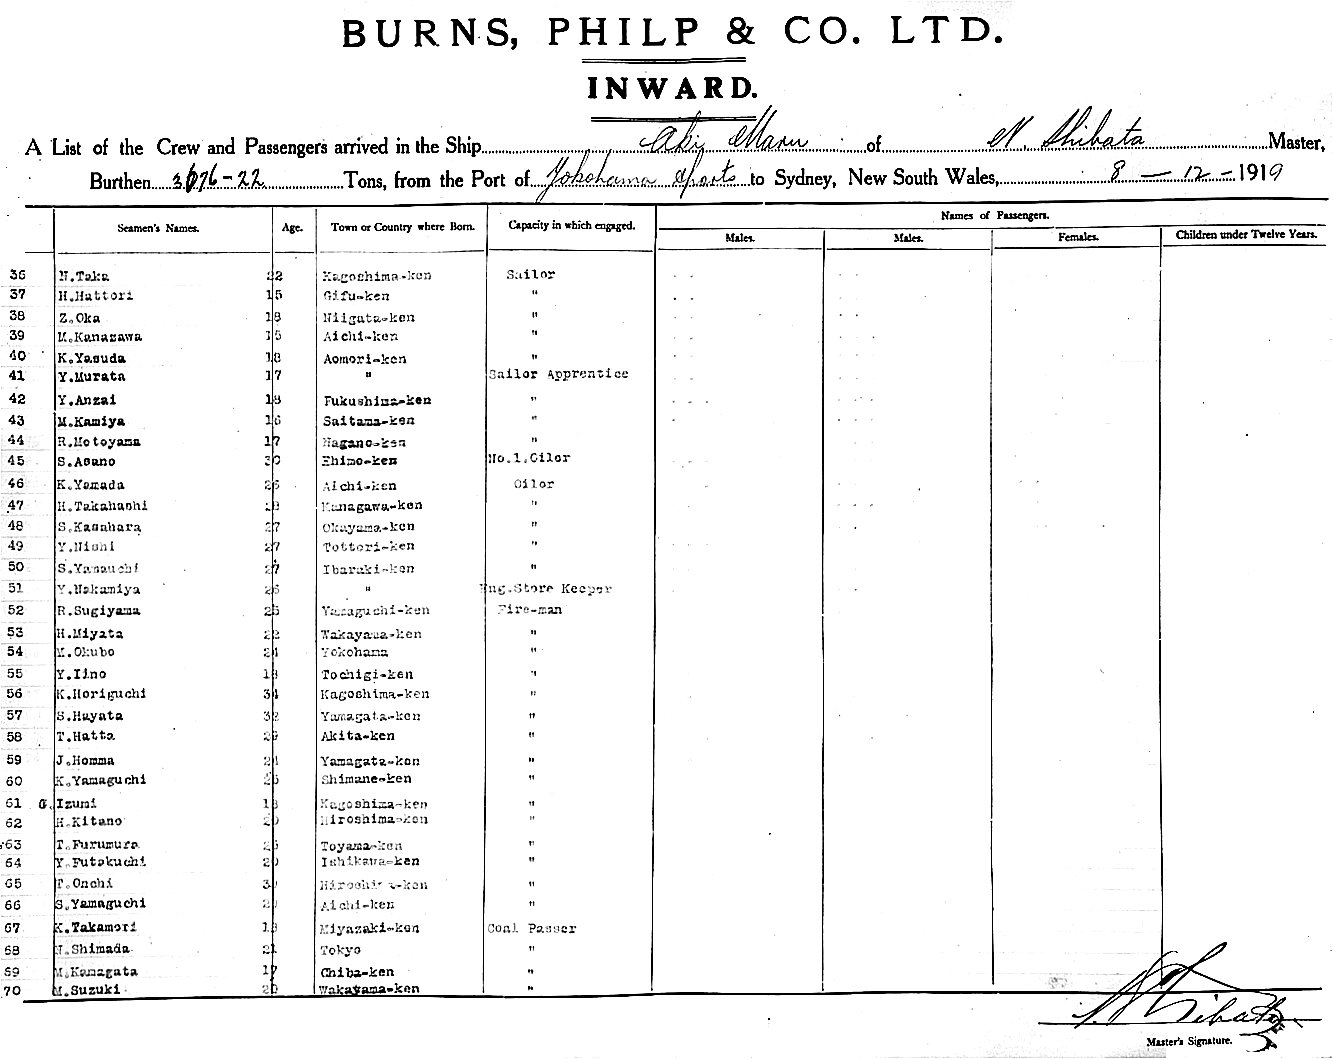 BURNS, PHILP & CO. LTD.
INWARD.
A List of the Crew and Passengers arrived in the Ship Aki Maru of N. Shibata Master,
Burthen 3676-22 Tons, from the Port of Yokohama & ports to Sydney, New South Wales, 8 - 12 - 1919
Seamen's Names. Age. Town or Country where Born. Capacity in which engaged. Names of Passengers.
Males. Males. Females. Children under Twelve Years.
36 N.Taka 22 Kagoshima-ken Sailor
37 H.Hattori 15 Gifu-ken "
38 Z.Oka 18 Niigata-ken "
39 M.Kanazawa 15 Aichi-ken "
40 K.Yasuda 18 Aomori-ken "
41 Y.Murata 17 " Sailor Apprentice
42 Y.Anzai 18 Fukushima-ken "
43 M.Kamiya 16 Saitama-ken "
44 R.Motoyama 17 Nagano-ken "
45 S.Asano 30 Ehime-ken No.1.Oiler
46 K.Yamada 25 Aichi-ken Oiler
47 H.Takahashi Kanagawa-ken "
48 S.Kasahara 27 Okayama-ken "
49 Y.Nishi 27 Tottori-ken "
50 S.Yamauchi 27 Ibaraki-ken "
51 Y.Nakamiya 26 " Eng.Store Keeper
52 R.Sugiyama 25 Yamaguchi-ken Fire-man
53 H.Miyata 22 Wakayama-ken "
54 M.Okubo 21 Yokohama "
55 Y.Iino 18 Tochigi-ken "
56 K.Horiguchi 34 Kagoshima-ken "
57 S.Hayata 32 Yamagata-ken "
58 T.Hatta Akita-ken "
59 J.Homma 21 Yamagata-ken "
60 K.Yamaguchi Shimane-ken "
61 G. Izumi Kagoshima-ken "
62 H.Kitano Hiroshima-ken "
63 T.Furumura Toyama-ken "
64 Y.Futakuchi Ishikawa-ken "
65 T.Onchi Hiroshima-ken "
66 S.Yamaguchi Aichi-ken "
67 K.Takamori 18 Miyazaki-ken Coal Passer
68 N.Shimada 21 Tokyo "
69 M.Kamagata 17 Chiba-ken "
70 M.Suzuki 20 Wakayama-ken "
N. Shibata
Master's Signature.